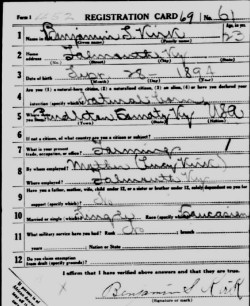 Form 1 REGISTRATION CARD 69 No. 61
1 Name in full Benjamin S. Kirk Age, in yrs. 22
(Given name) (Family name)
2 Home address Falmouth Ky
3 Date of birth Sept. 28 1894
(Month) (Day) (Year)
4 Are you (1) a natural-born citizen, (2) a naturalized citizen, (3) an alien, (4) or have you declared your
intention (specify which)? Natural born
5 Where were you born? Pendleton County Ky USA
(Town) (State) (Nation)
6 If not a citizen, of what country are you a citizen or subject?
7 What is your present trade, occupation, or office? Farming
8 By whom employed? Mother (Lucy Kirk)
Where employed? Falmouth Ky
9 Have you a father, mother, wife, child under 12, or a sister or brother under 12, solely dependent on you for
support (specify which)? No
10 Married or single (which)? Single Race (specify which)? Caucasian
11 What military service have you had? Rank No ; branch
years ; Nation or State
12 Do you claim exemption from draft (specify grounds)?
I affirm that I have verified above answers and that they are true.
Benjamin S Kirk
(Signature or mark)